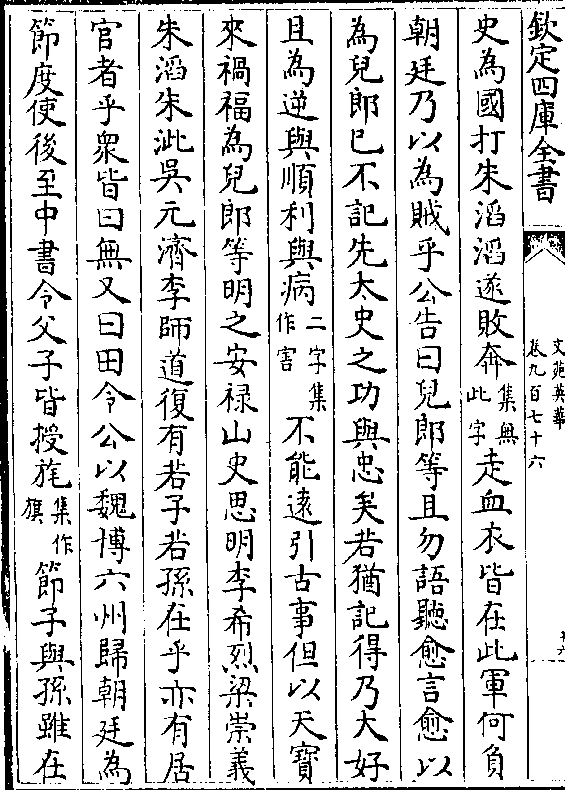 欽定四庫全書
文苑英華
卷九百七十六
史為國打朱滔滔遂敗奔集無此字走血衣皆在此軍何負
朝廷乃以為賊乎公告曰兒郎等且勿語聽愈言愈以
為兒郎已不記先太史之功與忠矣若猶記得乃大好
且為逆與順利與病二字集作害不能遠引古事但以天寶
來禍福為兒郎等明之安禄山史思明李希烈梁崇義
朱滔朱泚吳元濟李師道復有若子若孫在乎亦有居
官者乎衆皆曰無又曰田令公以魏博六州歸朝廷為
節度使後至中書令父子皆授旄集作旗節子與孫雖在